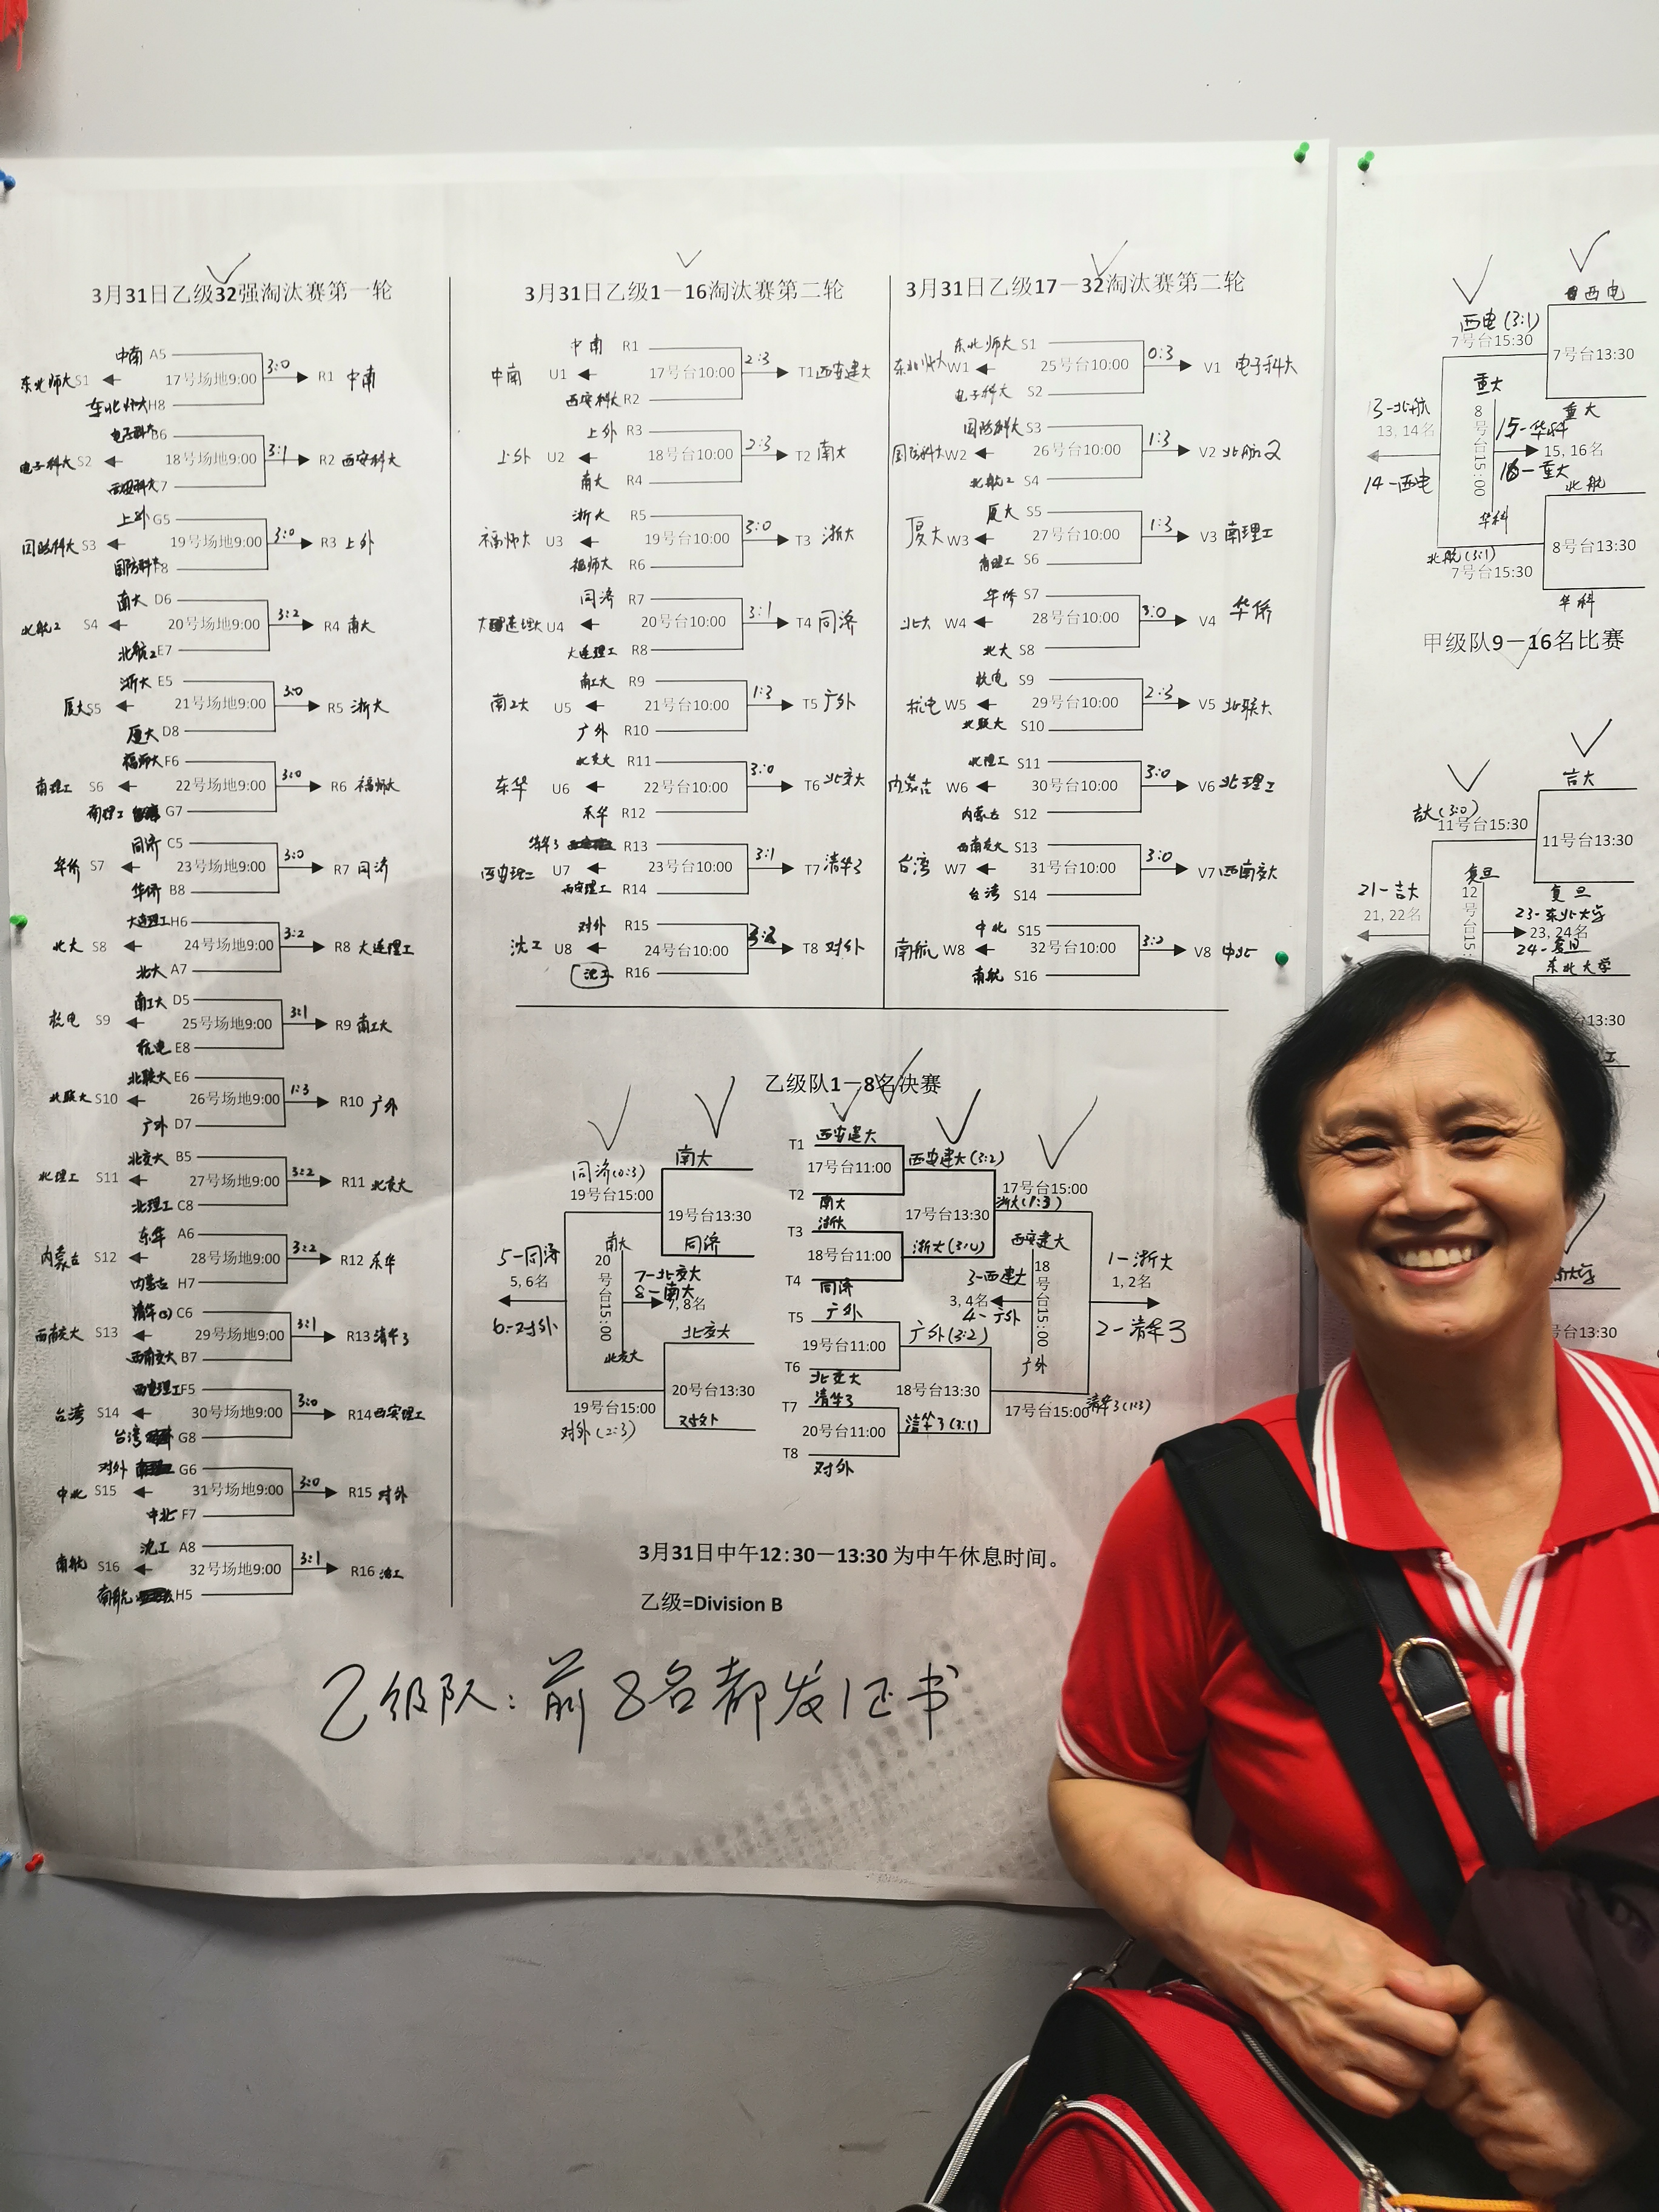 3月31日乙级32强淘汰赛第一轮
中南 A5
东北师大 S1 17号场地9:00 3:0 R1 中南
东北师大 H8
电子科大 B6
电子科大 S2 18号场地9:00 3:1 R2 西安科大
西安科大 7
上外 G5
国防科大 S3 19号场地9:00 3:0 R3 上外
国防科大 F8
南大 D6
北航2 S4 20号场地9:00 3:2 R4 南大
北航2 E7
浙大 E5
厦大 S5 21号场地9:00 3:0 R5 浙大
厦大 D8
福师大 F6
南理工 S6 22号场地9:00 3:0 R6 福师大
南理工 G7
同济 C5
华侨 S7 23号场地9:00 3:0 R7 同济
华侨 B8
大连理工 H6
北大 S8 24号场地9:00 3:2 R8 大连理工
北大 A7
南工大 D5
杭电 S9 25号场地9:00 3:1 R9 南工大
杭电 E8
北联大 E6
北联大 S10 26号场地9:00 1:3 R10 广外
广外 D7
北交大 B5
北理工 S11 27号场地9:00 3:2 R11 北交大
北理工 C8
东华 A6
内蒙古 S12 28号场地9:00 3:2 R12 东华
内蒙古 H7
清华(3) C6
西南交大 S13 29号场地9:00 3:1 R13 清华3
西南交大 B7
西安理工 F5
台湾 S14 30号场地9:00 3:0 R14 西安理工
台湾 G8
对外 G6
中北 S15 31号场地9:00 3:0 R15 对外
中北 F7
沈工 A8
南航 S16 32号场地9:00 3:1 R16 沈工
南航 H5
3月31日乙级1－16淘汰赛第二轮
中南 R1
中南 U1 17号台10:00 2:3 T1 西安建大
西安科大 R2
上外 R3
上外 U2 18号台10:00 2:3 T2 南大
南大 R4
浙大 R5
福师大 U3 19号台10:00 3:0 T3 浙大
福师大 R6
同济 R7
大连理大 U4 20号台10:00 3:1 T4 同济
大连理工 R8
南工大 R9
南工大 U5 21号台10:00 1:3 T5 广外
广外 R10
北交大 R11
东华 U6 22号台10:00 3:0 T6 北交大
东华 R12
清华3 R13
西安理工 U7 23号台10:00 3:1 T7 清华3
西安理工 R14
对外 R15
沈工 U8 24号台10:00 T8 对外
沈工 R16
3月31日乙级17－32淘汰赛第二轮
东北师大 S1
东北师大 W1 25号台10:00 0:3 V1 电子科大
电子科大 S2
国防科大 S3
国防科大 W2 26号台10:00 1:3 V2 北航2
北航2 S4
厦大 S5
厦大 W3 27号台10:00 1:3 V3 南理工
南理工 S6
华侨 S7
北大 W4 28号台10:00 3:0 V4 华侨
北大 S8
杭电 S9
杭电 W5 29号台10:00 2:3 V5 北联大
北联大 S10
北理工 S11
内蒙古 W6 30号台10:00 3:0 V6 北理工
内蒙古 S12
西南交大 S13
台湾 W7 31号台10:00 3:0 V7 西南交大
台湾 S14
中北 S15
南航 W8 32号台10:00 3:2 V8 中北
南航 S16
乙级队1－8名决赛
南大
同济(0:3)
19号台15:00
19号台13:30
同济
5-同济
5, 6名
6-对外
南大
20号台15:00
北交大
7-北交大
8-南大
7, 8名
北交大
20号台13:30
19号台15:00
对外(2:3)
对外
T1 西安建大
17号台11:00 西安建大(3:2)
T2 南大
17号台13:30
T3 浙大
18号台11:00 浙大(3:0)
T4 同济
T5 广外
19号台11:00 广外(3:2)
T6 北交大
18号台13:30
T7 清华3
20号台11:00 清华3(3:1)
T8 对外
17号台15:00
浙大(1:3)
西安建大
18号台15:00
广外
3-西建大
3, 4名
4-广外
1-浙大
1, 2名
2-清华3
17号台15:00 清华3(1:3)
3月31日中午12:30－13:30 为中午休息时间。
乙级=Division B
乙级队：前8名都发证书
西电
西电(3:1)
7号台15:30
7号台13:30
重大
重大
8号台15:00
华科
13-北航
13, 14名
14-西电
15-华科
15, 16名
16-重大
北航
北航(3:1)
7号台15:30
8号台13:30
华科
甲级队9－16名比赛
吉大
吉大(3:0)
11号台15:30
11号台13:30
复旦
复旦
12号台15:
21-吉大
21, 22名
23-东北大学
23, 24名
24-复旦
东北大学
号台13:30
工
大学
号台13:30